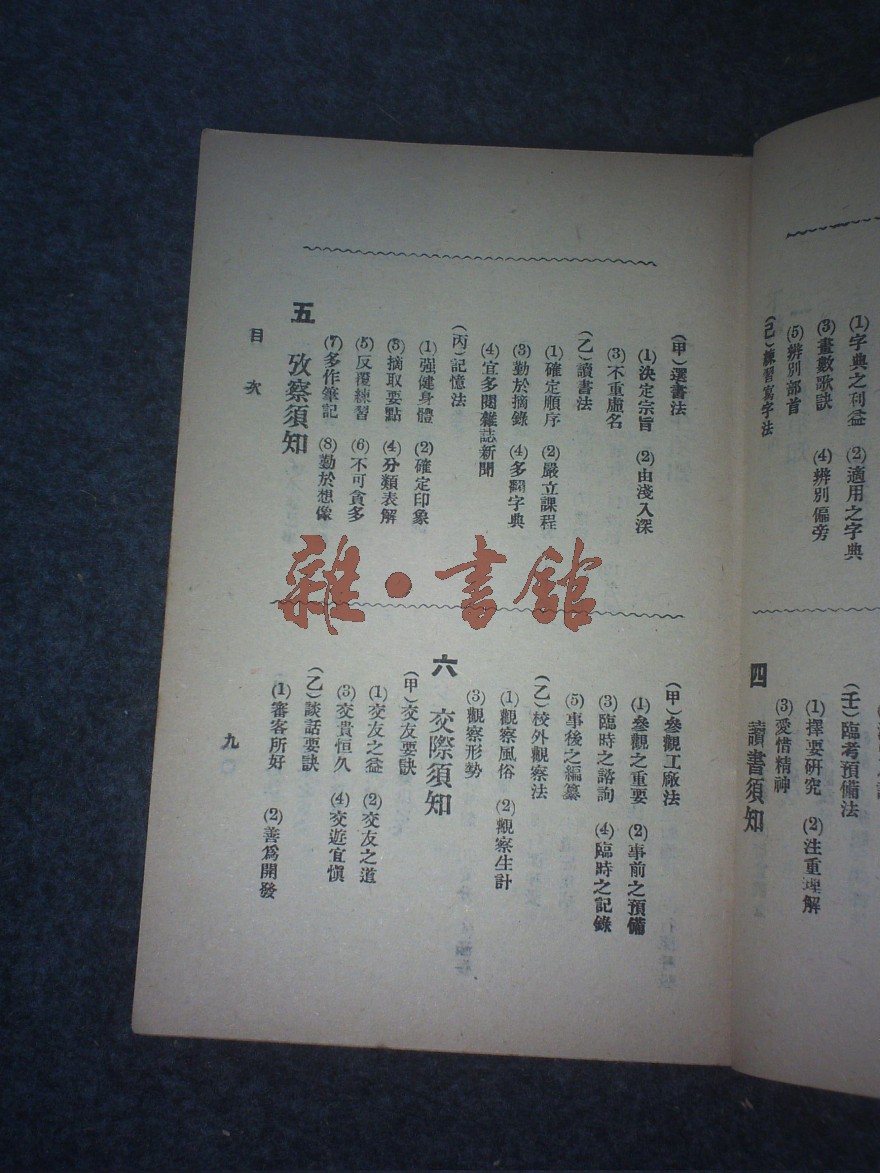 (1)字典之利益 (2)適用之字典
(3)畫數歌訣 (4)辨別偏旁
(5)辨別部首
(己)練習寫字法
(壬)臨考預備法
(1)擇要研究 (2)注重理解
(3)愛惜精神
四 讀書須知
(甲)選書法
(1)決定宗旨 (2)由淺入深
(3)不重虛名
(乙)讀書法
(1)確定順序 (2)嚴立課程
(3)勤於摘錄 (4)多翻字典
(4)宜多閱雜誌新聞
(丙)記憶法
(1)强健身體 (2)確定印象
(3)摘取要點 (4)分類表解
(5)反覆練習 (6)不可貪多
(7)多作筆記 (8)勤於想像
五 攷察須知
(甲)參觀工廠法
(1)參觀之重要 (2)事前之預備
(3)臨時之諮詢 (4)臨時之記錄
(5)事後之編纂
(乙)校外觀察法
(1)觀察風俗 (2)觀察生計
(3)觀察形勢
六 交際須知
(甲)交友要訣
(1)交友之益 (2)交友之道
(3)交貴恒久 (4)交遊宜慎
(乙)談話要訣
(1)審客所好 (2)善爲開發
目次
九
雜·書館